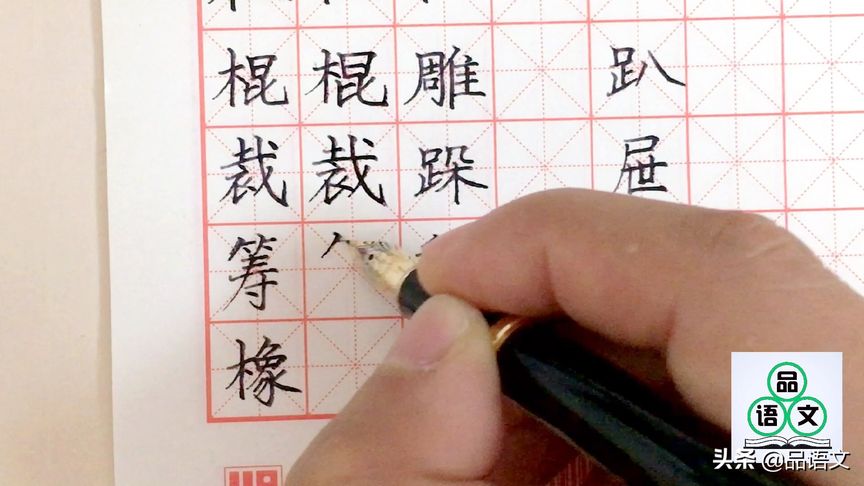 棍 棍 雕 趴
裁 裁 跺 屉
筹
橡
品
语 文
头条 @品语文